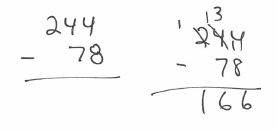 244
- 78
1 13
244
- 78
166